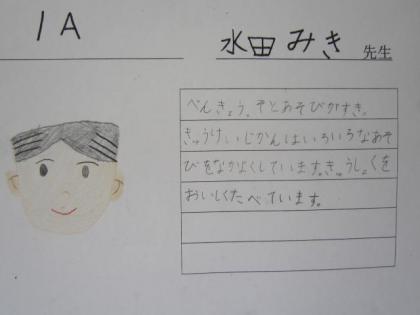 1A
水田みき 先生
べんきょう。そとあそびがすき。
きゅうけいじかんはいろいろなあそ
びをなかよくしています。きゅうしょくを
おいしくたべています。